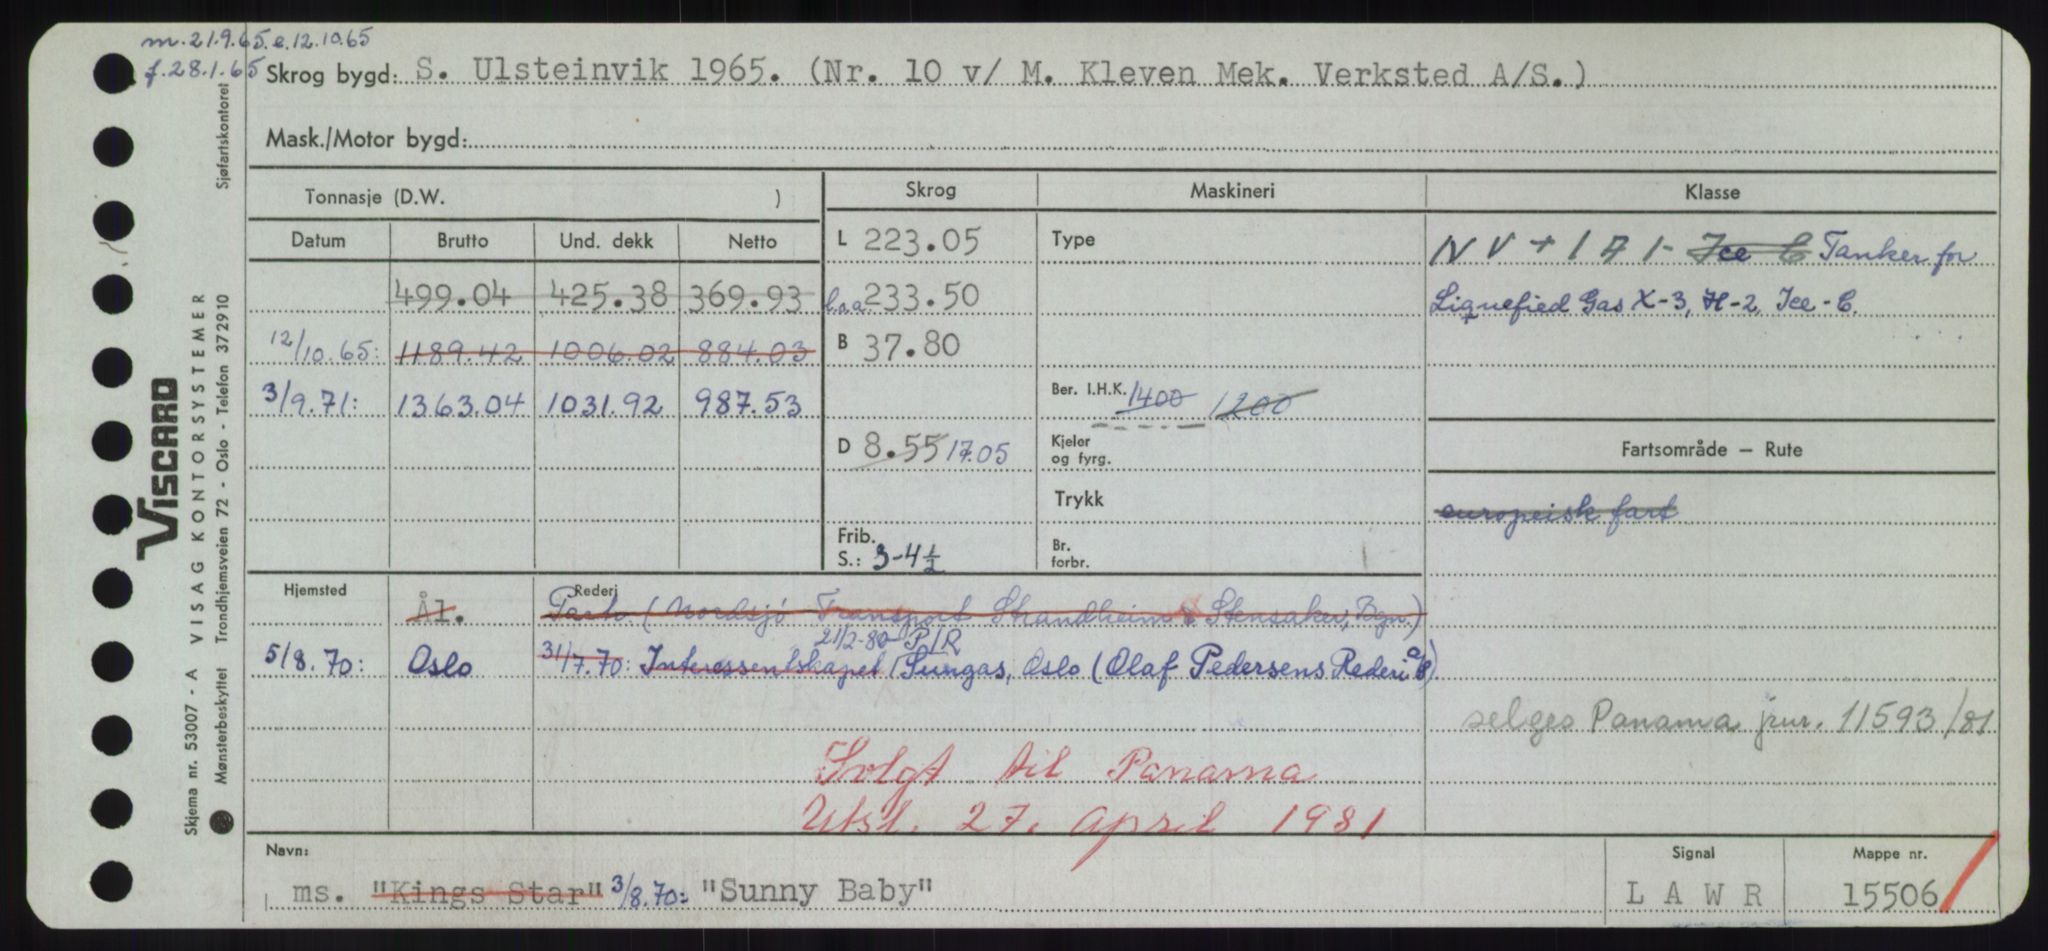 m. 21.9.65. e. 12.10.65
f. 28.1.65
Skrog bygd: S. Ulsteinvik 1965. (Nr. 10 v/ M. Kleven Mek. Verksted A/S.)
Mask./Motor bygd:
Tonnasje (D.W. )
Skrog Maskineri Klasse
Datum Brutto Und. dekk Netto
L 223.05 Type
NV + 1A1 - Ice C Tanker for
499.04 425.38 369.93 l.o.a. 233.50
Liquefied Gas X-3, H-2, Ice-C.
12/10.65: 1189.42 1006.02 884.03 B 37.80
3/9.71: 1363.04 1031.92 987.53
Ber. I.H.K. 1400 1200
D 8.55 17.05
Kjeler og fyrg.
Fartsområde – Rute
Trykk
europeisk fart
Frib. S.: 3-4½
Br. forbr.
Hjemsted Rederi
Ål. (Nordsjø Transport Strandheim & Stensaker, Bgn.)
21/2-80 P/R
5/8.70: Oslo 31/7.70: Interessentskapet Sungas, Oslo (Olaf Pedersens Rederi a/s)
selges Panama jnr. 11593/81
Solgt til Panama
Utsl. 27. april 1981
Navn: Signal Mappe nr.
ms. "Kings Star" 3/8.70: "Sunny Baby" LAWR 15506
VISCARD
Skjema nr. 53007 - A VISAG KONTORSYSTEMER
Mønsterbeskyttet Trondhjemsveien 72 - Oslo - Telefon 372910
Sjøfartskontoret